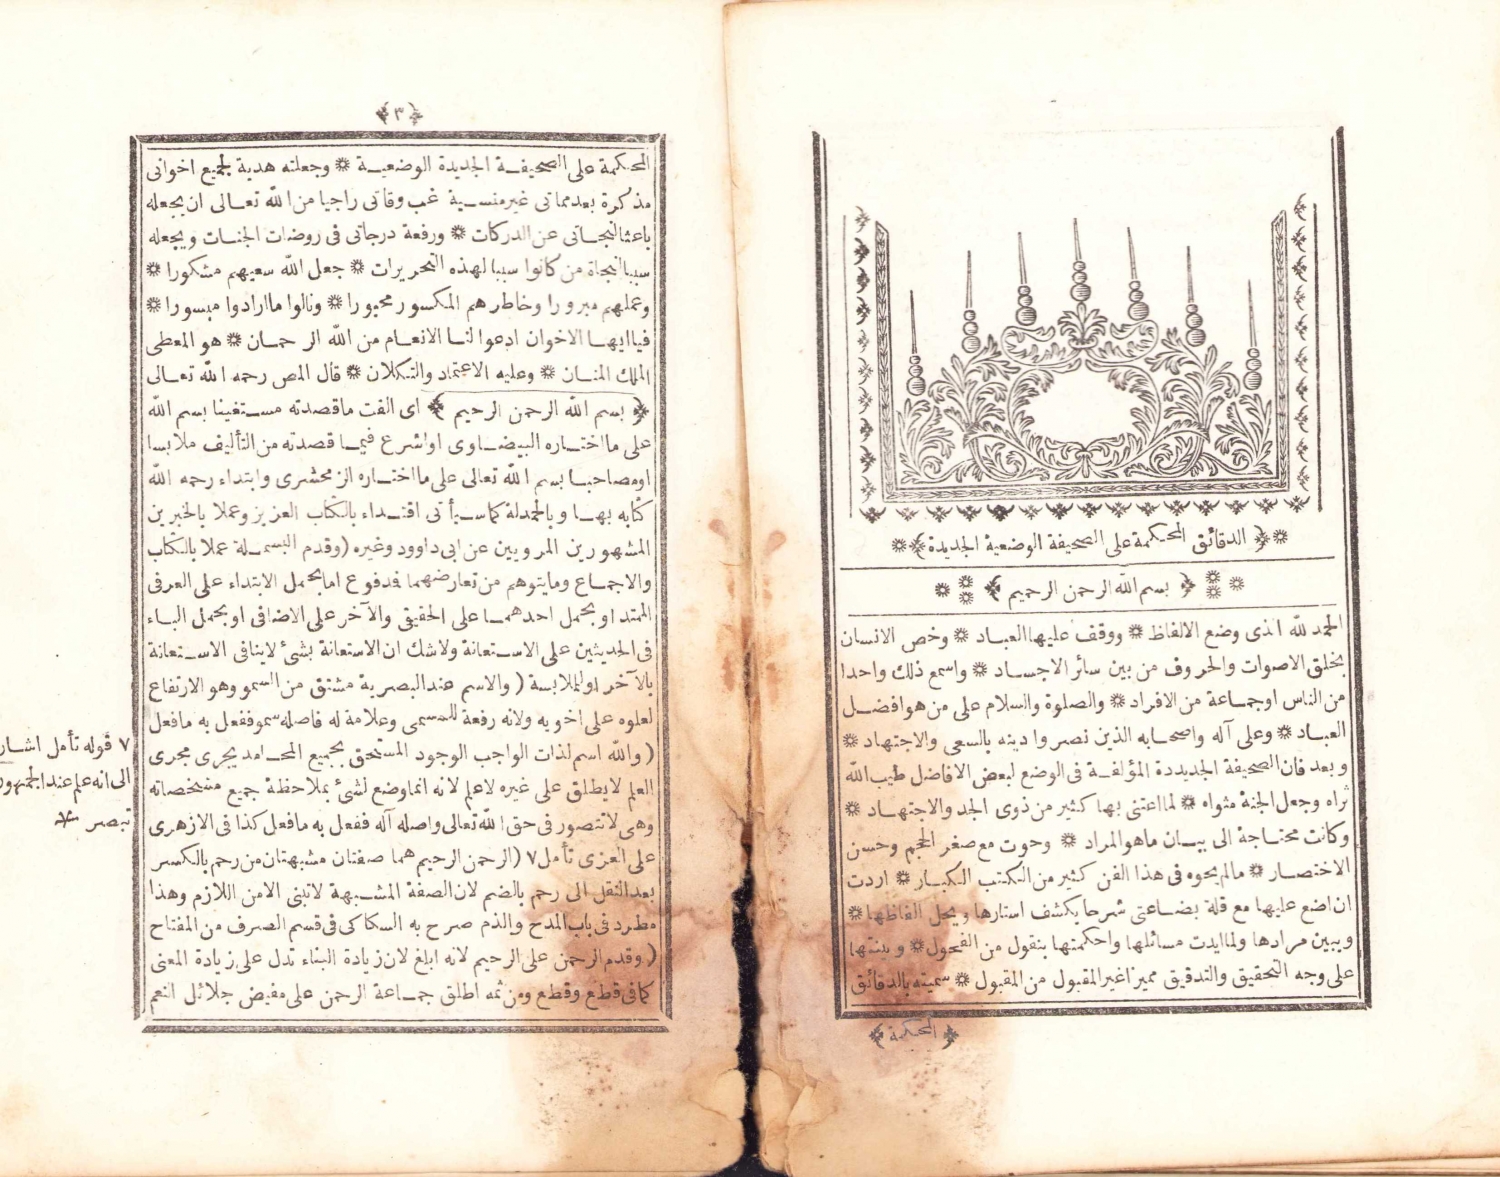 الدقائق المحكمة على الصحيفة الوضعية الجديدة
بسم الله الرحمن الرحيم
الحمد لله الذى وضع الالفاظ * ووقف عليها العباد * وخص الانسان
بخلق الاصوات والحروف من بين سائر الاجساد * واسمع ذلك واحدا
من الناس او جماعة من الافراد * والصلوة والسلام على من هو افضل
العباد * وعلى آله واصحابه الذين نصروا دينه بالسعى والاجتهاد *
وبعد فان الصحيفة الجديدة المؤلفة فى الوضع لبعض الافاضل طيب الله
ثراه وجعل الجنة مثواه * لما اعتنى بها كثير من ذوى الجد والاجتهاد *
وكانت محتاجة الى بيان ماهو المراد * وحوت مع صغر الحجم وحسن
الاختصار * مالم يحوه فى هذا الفن كثير من الكتب الكبار * اردت
ان اضع عليها مع قلة بضاعتى شرحا يكشف استارها ويحل الفاظها *
ويبين مرادها ولما ايدت مسائلها واحكمتها بنقول من الفحول * وبينتها
على وجه التحقيق والتدقيق مميزا غير المقبول من المقبول * سميته بالدقائق
المحكمة
٣
المحكمة على الصحيفة الجديدة الوضعية * وجعلته هدية لجميع اخوانى
مذكرة بعد مماتى غير منسية غب وفاتى راجيا من الله تعالى ان يجعله
باعثا لنجاتى عن الدركات * ورفعة درجاتى فى روضات الجنات ويجعله
سببا لنجاة من كانوا سببا لهذه التحريرات * جعل الله سعيهم مشكورا *
وعملهم مبرورا وخاطرهم المكسور مجبورا * ونالوا ما ارادوا ميسورا *
فيا ايها الاخوان ادعوا لنا الانعام من الله الرحمان * هو المعطى
الملك المنان * وعليه الاعتماد والتكلان * قال المص رحمه الله تعالى
(بسم الله الرحمن الرحيم) اى الفت ماقصدته مستعينا بسم الله
على ما اختاره البيضاوى او اشرع فيما قصدته من التأليف ملابسا
او مصاحبا بسم الله تعالى على ما اختاره الزمحشرى وابتداء رحمه الله
كتابه بها وبالحمدلة كما سيأتى اقتداء بالكتاب العزيز وعملا بالخبرين
المشهورين المرويين عن ابى داوود وغيره (وقدم البسملة عملا بالكتاب
والاجماع ومايتوهم من تعارضهما فدفوع اما بحمل الابتداء على العرفى
الممتد او بحمل احدهما على الحقيقى والآخر على الاضافى او بحمل الباء
فى الحديثين على الاستعانة ولاشك ان الاستعانة بشئ لاينافى الاستعانة
بالآخر او الملابسة (والاسم عند البصرية مشتق من السمو وهو الارتفاع
لعلوه على اخويه ولانه رفعة للمسمى وعلامة له فاصله سمو ففعل به مافعل
(والله اسم لذات الواجب الوجود المستحق بجميع المحامد يجرى مجرى
العلم لايطلق على غيره لاعلم لانه انما وضع لشئ بملاحظة جميع مشخصاته
وهى لاتتصور فى حق الله تعالى واصله آله ففعل به مافعل كذا فى الازهرى
على العزى تأمل ٧ (الرحمن الرحيم هما صفتان مشبهتان من رحم بالكسر
بعد النقل الى رحم بالضم لان الصفة المشبهة لاتبنى الامن اللازم وهذا
مطرد فى باب المدح والذم صرح به السكاكى فى قسم الصرف من المفتاح
(وقدم الرحمن على الرحيم لانه ابلغ لان زيادة البناء تدل على زيادة المعنى
كما فى قطع وقطع ومن ثمه اطلق جماعة الرحمن على مفيض جلائل النعم
٧ قوله تأمل اشار
الى انه علم عند الجمهور
تبصر *